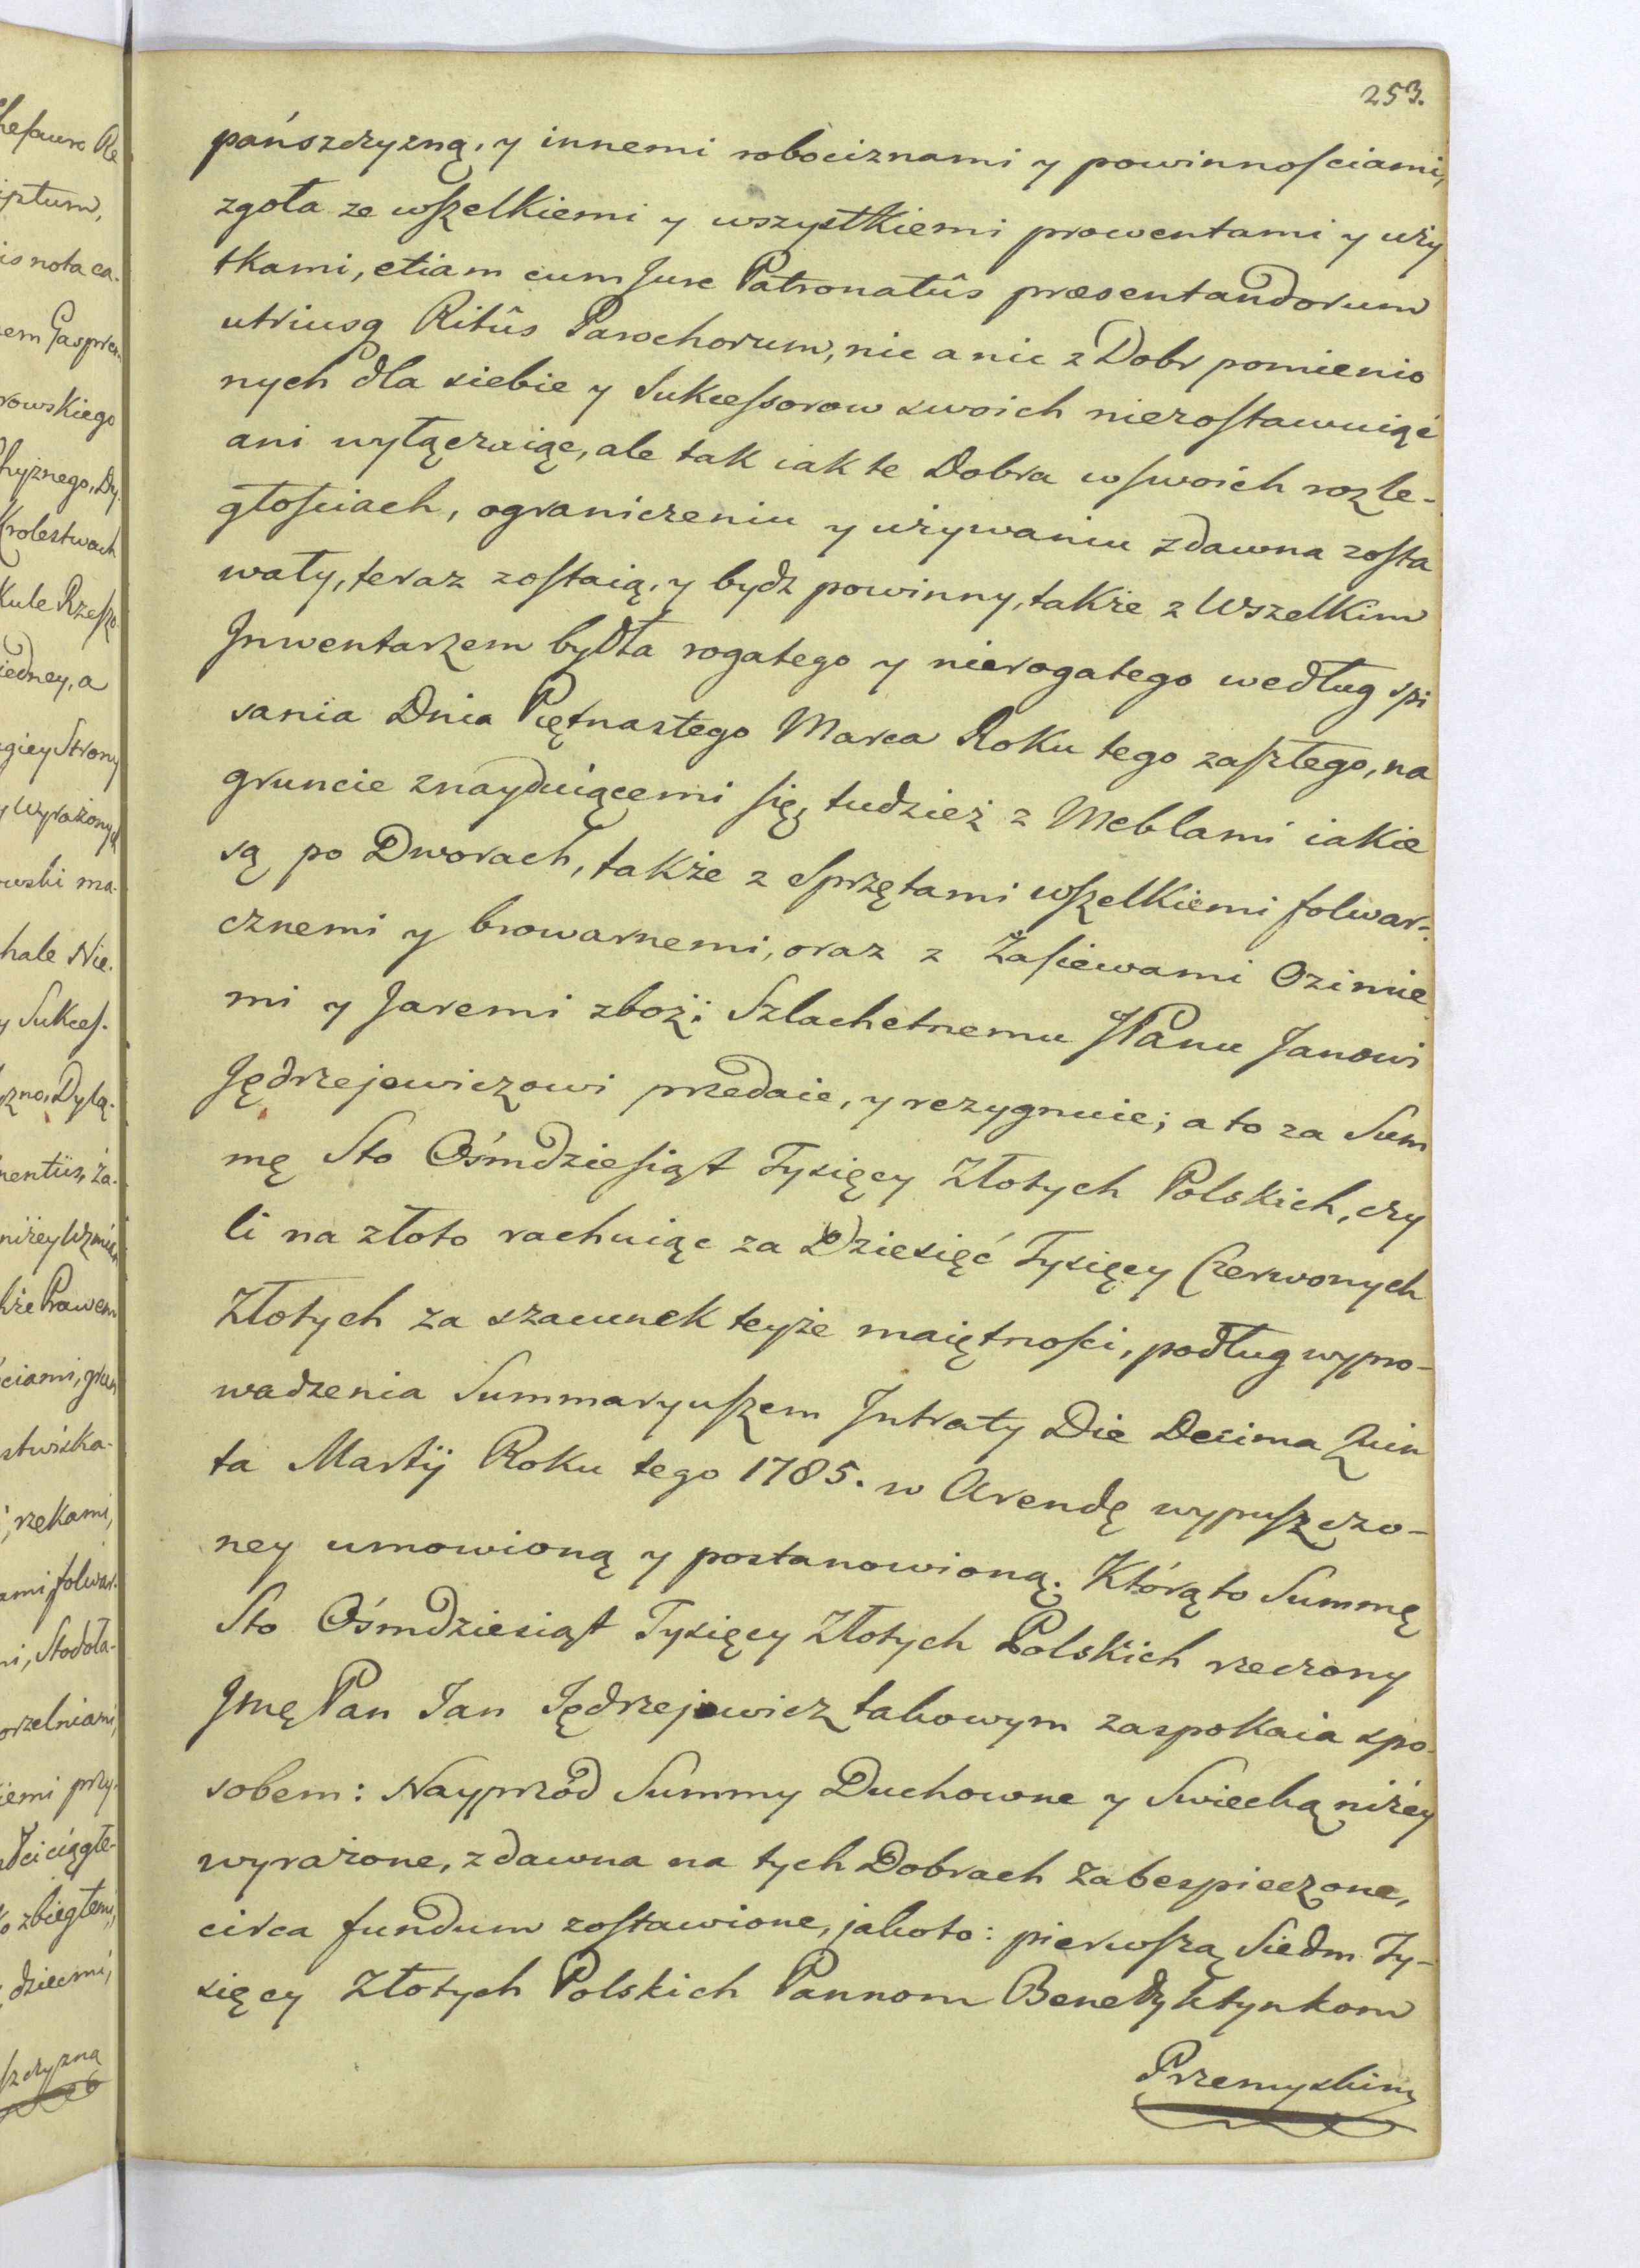 253.
pańszczyzną, y innemi robociznami y powinnościami,
zgoła ze wszelkiemi y wszystkiemi prowentami y uży
tkami, etiam cum Jure Patronatûs præsentandorum
utriusq Ritûs Parochorum, nic a nic z Dobr pomienio
nych dla siebie y Sukcessorow swoich niezostawuiąć
ani wyłączaiąc, ale tak iak te Dobra w swoich rozle-
głościach, ograniczeniu y używaniu zdawna zosta
wały, teraz zostaią, y bydz powinny, także z Wszelkim
Inwentarzem bydła rogatego y nierogatego według spi
sania Dnia Piętnastego Marca Roku tego zaszłego, na
gruncie znayduiącemi się, tudzież z Meblami iakie
są po Dworach, także z Sprzętami wszelkiemi folwar-
cznemi y browarnemi, oraz z Zasiewami Ozimie
mi y Jaremi zboż; Szlachetnemu JPanu Janowi
Jędrzejewiczowi przedaie, y rezygnuie; a to za Sum
mę Sto Ośmdziesiąt Tysięcy Złotych Polskich, czy
li na złoto rachuiąc za Dziesięć Tysięcy Czerwonych
Złotych za szacunek teyże maiętności, podług wypro-
wadzenia Summaryuszem Intraty Die Decima Quin
ta Martij Roku tego 1785. w Arendę wypuszczo-
ney umowioną y postanowioną. Którąto Summę
Sto Ośmdziesiąt Tysięcy Złotych Polskich rzeczony
Jmę Pan Jan Jędrzejowicz takowym zaspokaia spo-
sobem: Nayprzód Summy Duchowne y Swiecką niżey
wyrażone, zdawna na tych Dobrach zabespieczone,
circa fundum zostawione, jakoto: pierwszą Siedm Ty-
sięcy Złotych Polskich Pannom Benedyktynkom
Przemyskim